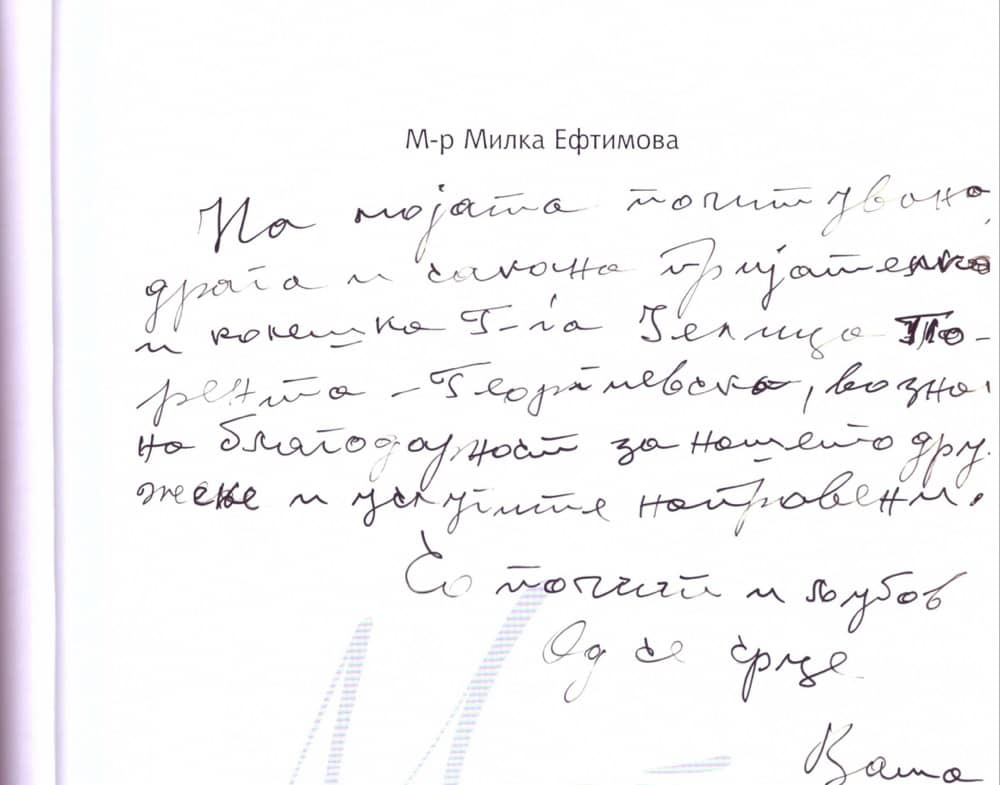 М-р Милка Ефтимова
На мојата почитувана,
драга и сакана пријателка
и колешка Г-ѓа Зелица По-
рента - Георгиевска, во зна.
на благодарност за нашето дру.
жење и услугите направени.
Со почит и љубов
Од се срце
Ваша